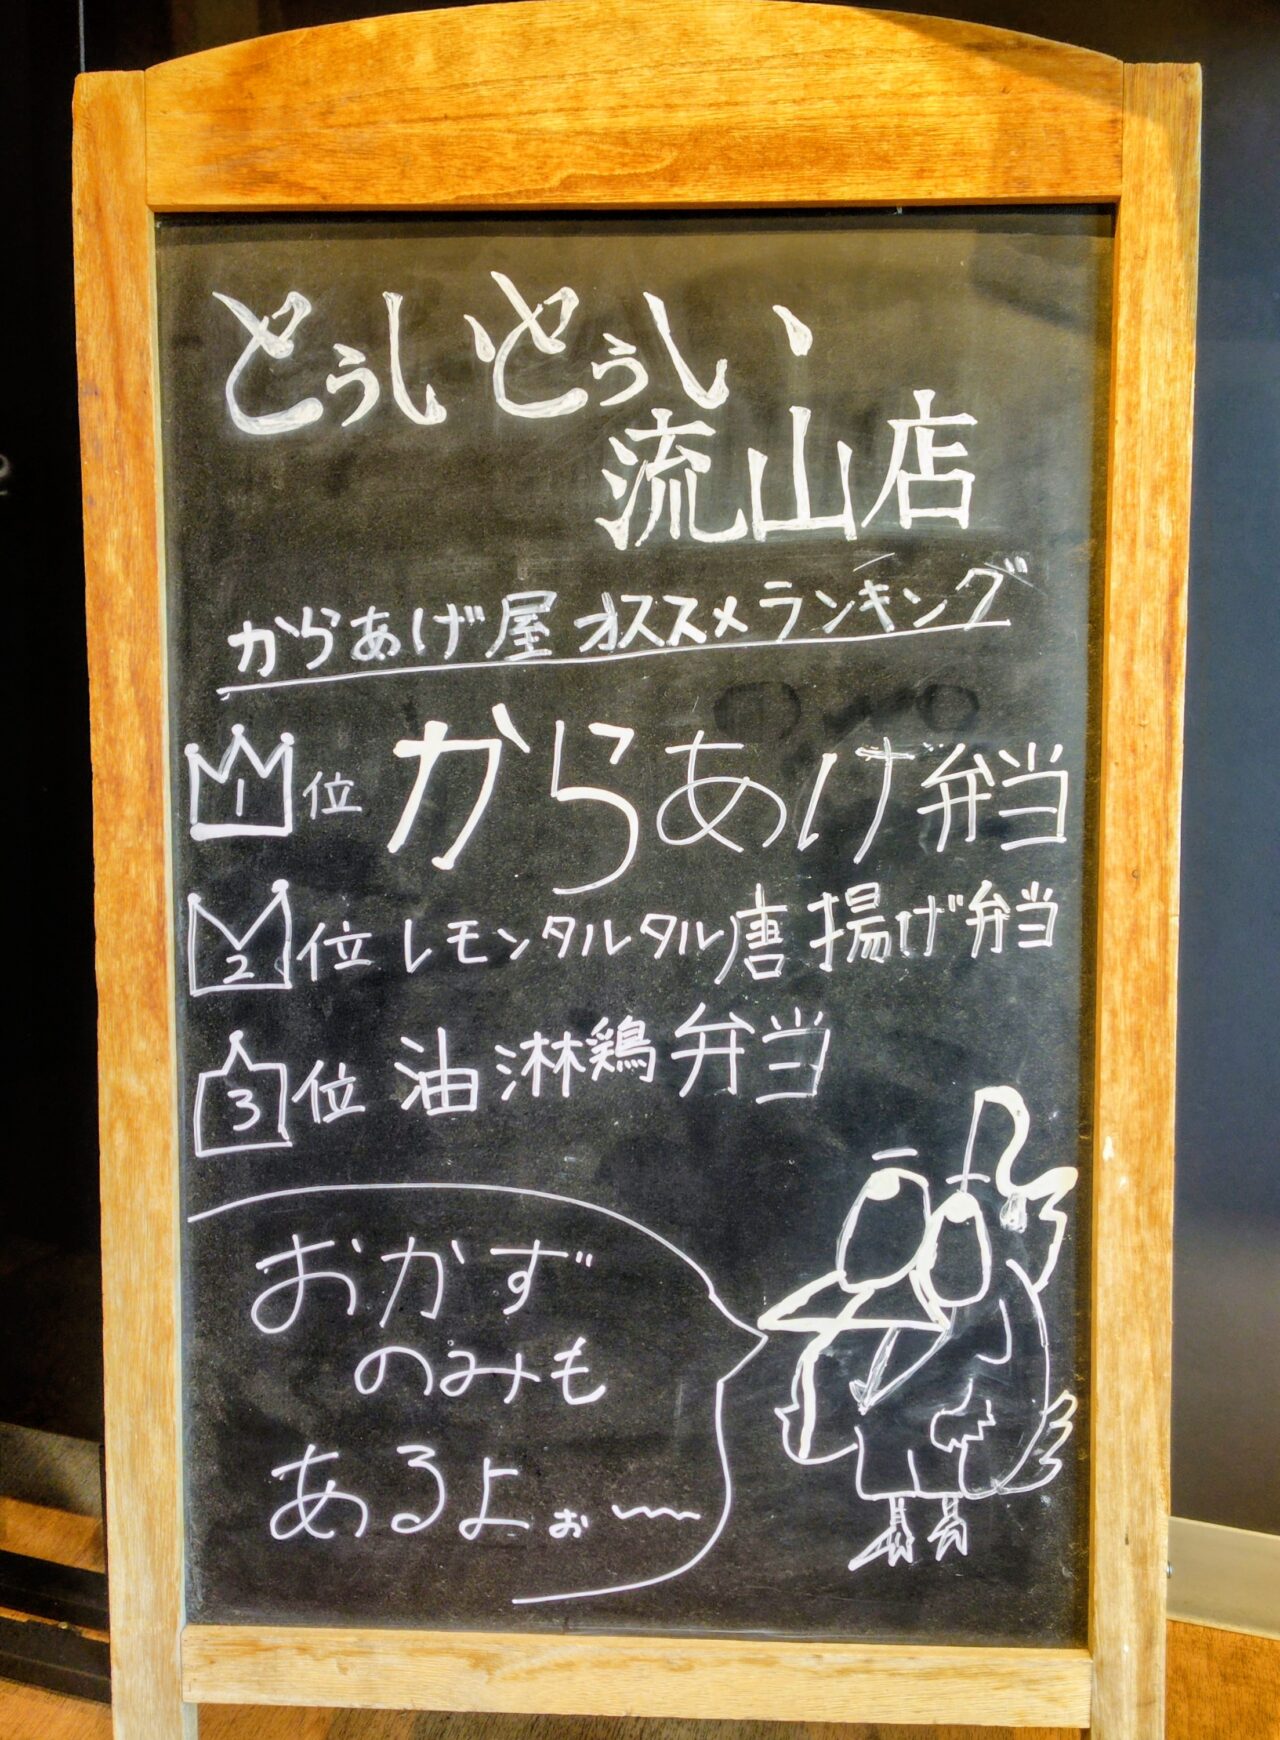 とぅしいとぅしい
流山店
からあげ屋 オススメランキング
1位 からあげ弁当
2位 レモンタルタル唐揚げ弁当
3位 油淋鶏弁当
おかず
のみも
あるよぉ〜